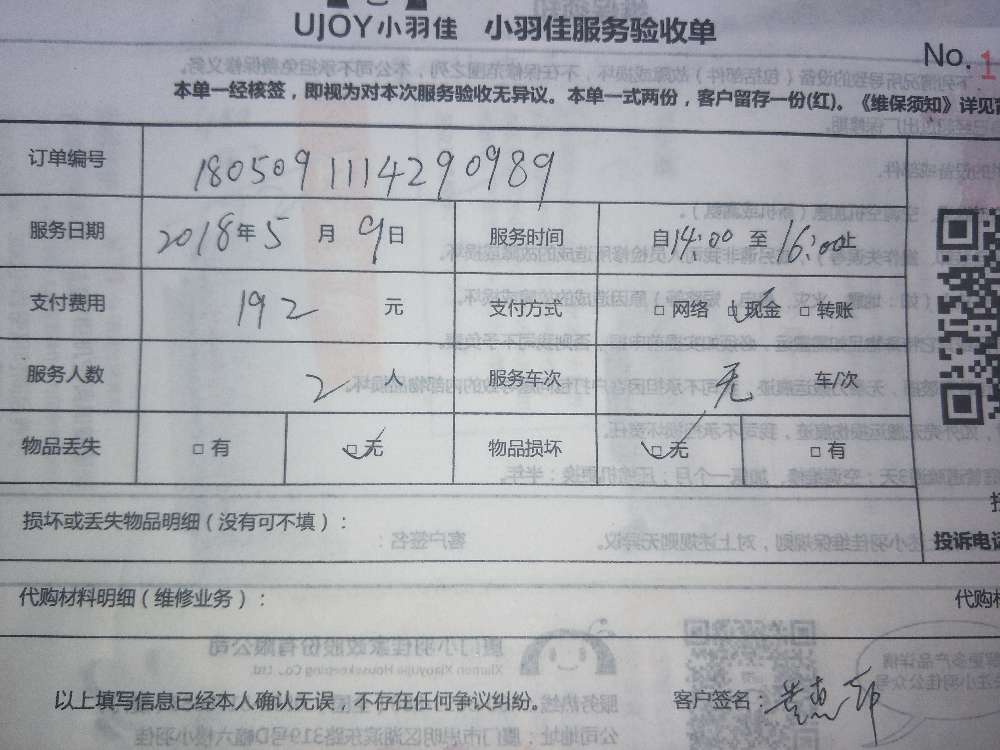 UJOY小羽佳 小羽佳服务验收单
No.1
本单一经核签，即视为对本次服务验收无异议。本单一式两份，客户留存一份(红)。《维保须知》详见
订单编号 1805091114290989
服务日期 2018年5月9日 服务时间 自14:00至16:00止
支付费用 192元 支付方式 □网络 □现金 □转账
服务人数 2人 服务车次 无 车/次
物品丢失 □有 □无 物品损坏 □无 □有
损坏或丢失物品明细（没有可不填）：
投诉电话
代购材料明细（维修业务）： 代购
以上填写信息已经本人确认无误，不存在任何争议纠纷。 客户签名：黄惠